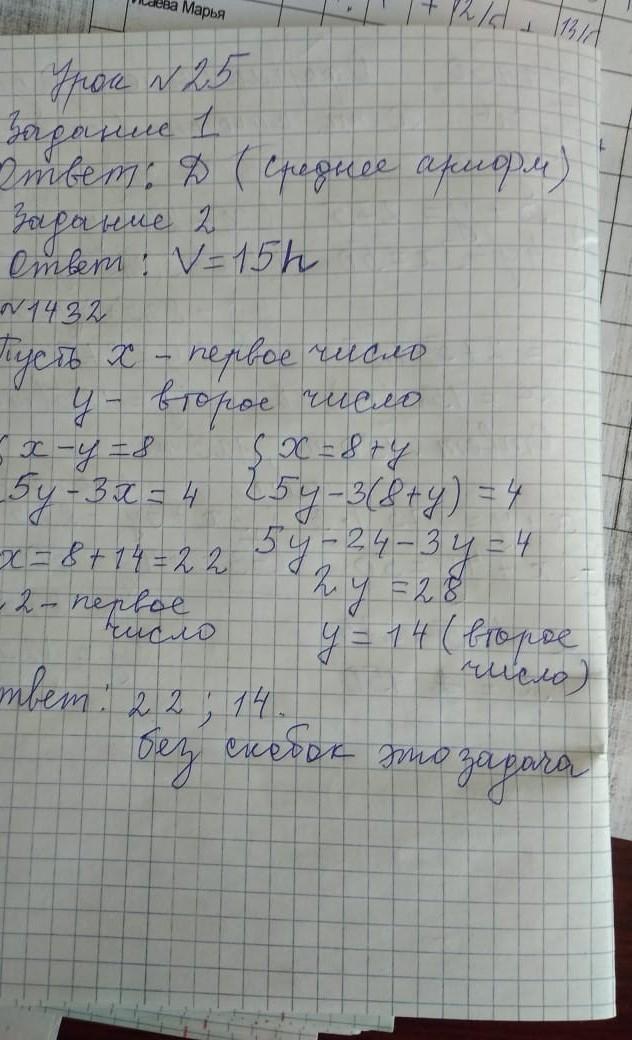 Исаева Марья
+ 12/5 + 13/5
Урок №25
Задание 1
Ответ: D (среднее арифм)
Задание 2
Ответ: V=15h
№1432
Пусть x – первое число
y – второе число
{ x – y = 8 { x = 8 + y
{ 5y – 3x = 4 { 5y – 3(8+y) = 4
x = 8 + 14 = 22 5y – 24 – 3y = 4
22 – первое 2y = 28
число y = 14 (второе
число)
Ответ: 22; 14.
без скобок это задача